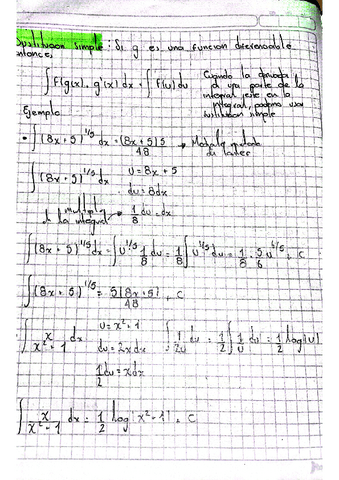 Sustitucion Simple: Si g es una funcion diferenciable
entonces
∫ F(g(x)) . g'(x) dx = ∫ F(u) du
Cuando la derivada
de una parte de la
integral este en la
integral, podemos usar
sustitucion simple
Ejemplo
• ∫ (8x + 5)^1/5 dx = (8x + 5)5 / 48 →
de hacer
∫ (8x + 5)^1/5 dx   u = 8x + 5
du = 8dx
multiplo
de la integral → 1/8 du = dx
∫ (8x + 5)^1/5 dx = ∫ u^1/5 1/8 du = 1/8 ∫ u^1/5 du = 1/8 . 5/6 u^6/5 + C
∫ (8x + 5)^1/5 = 5(8x + 5) / 48 + C
∫ x / x² - 1 dx   u = x² - 1   ∫ 1/2u du = 1/2 ∫ 1/u du = 1/2 log|u|
du = 2x dx
1/2 du = x dx
∫ x / x² - 1 dx = 1/2 log|x² - 1| + C